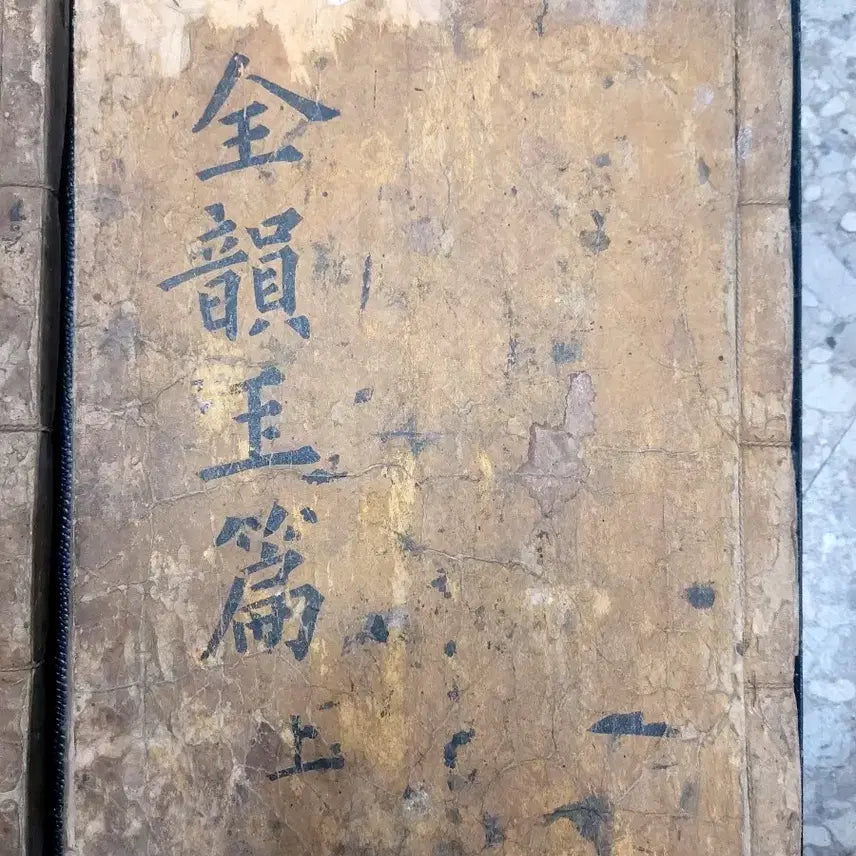 全韻玉篇 上